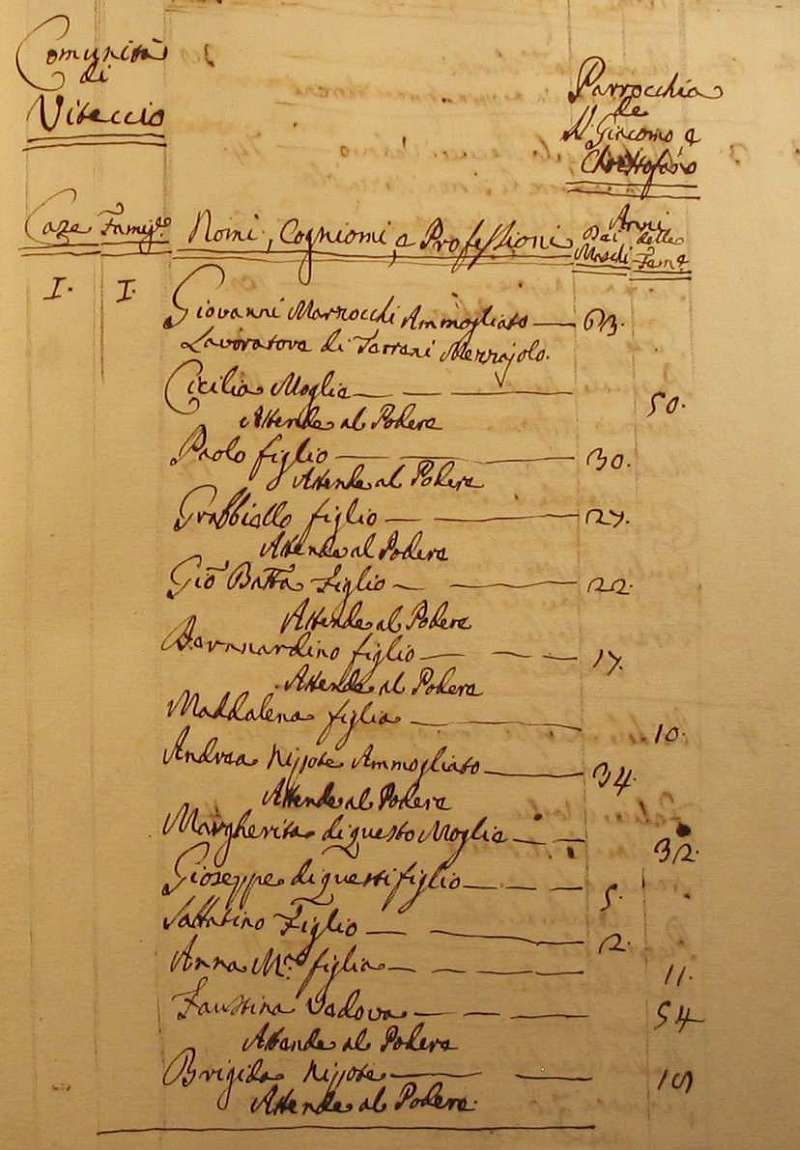 Comunità
di
Viteccio
Parrocchia
de
SS. Giacomo e
Christofaro
Caze Famige. Nomi, Cogniomi, e Professioni Anni
Dei Maschi delle Fame.
I. I. Giovanni Marzocchi Ammogliato 63.
Lavoratore di Terreni Mezzajolo.
Cicilia Moglie 50.
Attende al Podere
Paolo figlio 30.
Attende al Podere
Grabbiello figlio 27.
Attende al Podere
Gio Batta Figlio 22.
Attende al Podere
Bernardino figlio 17.
Attende al Podere
Maddalena figlia 10.
Andrea Nippote Ammogliato 34.
Attende al Podere
Margherita di questo Moglie 32.
Gioseppe di questi figlio 5.
Sabbatino Figlio 2.
Anna Ma. figlia 11.
Faustina Vedova 54
Attende al Podere
Brigida Nippote
Attende al Podere.